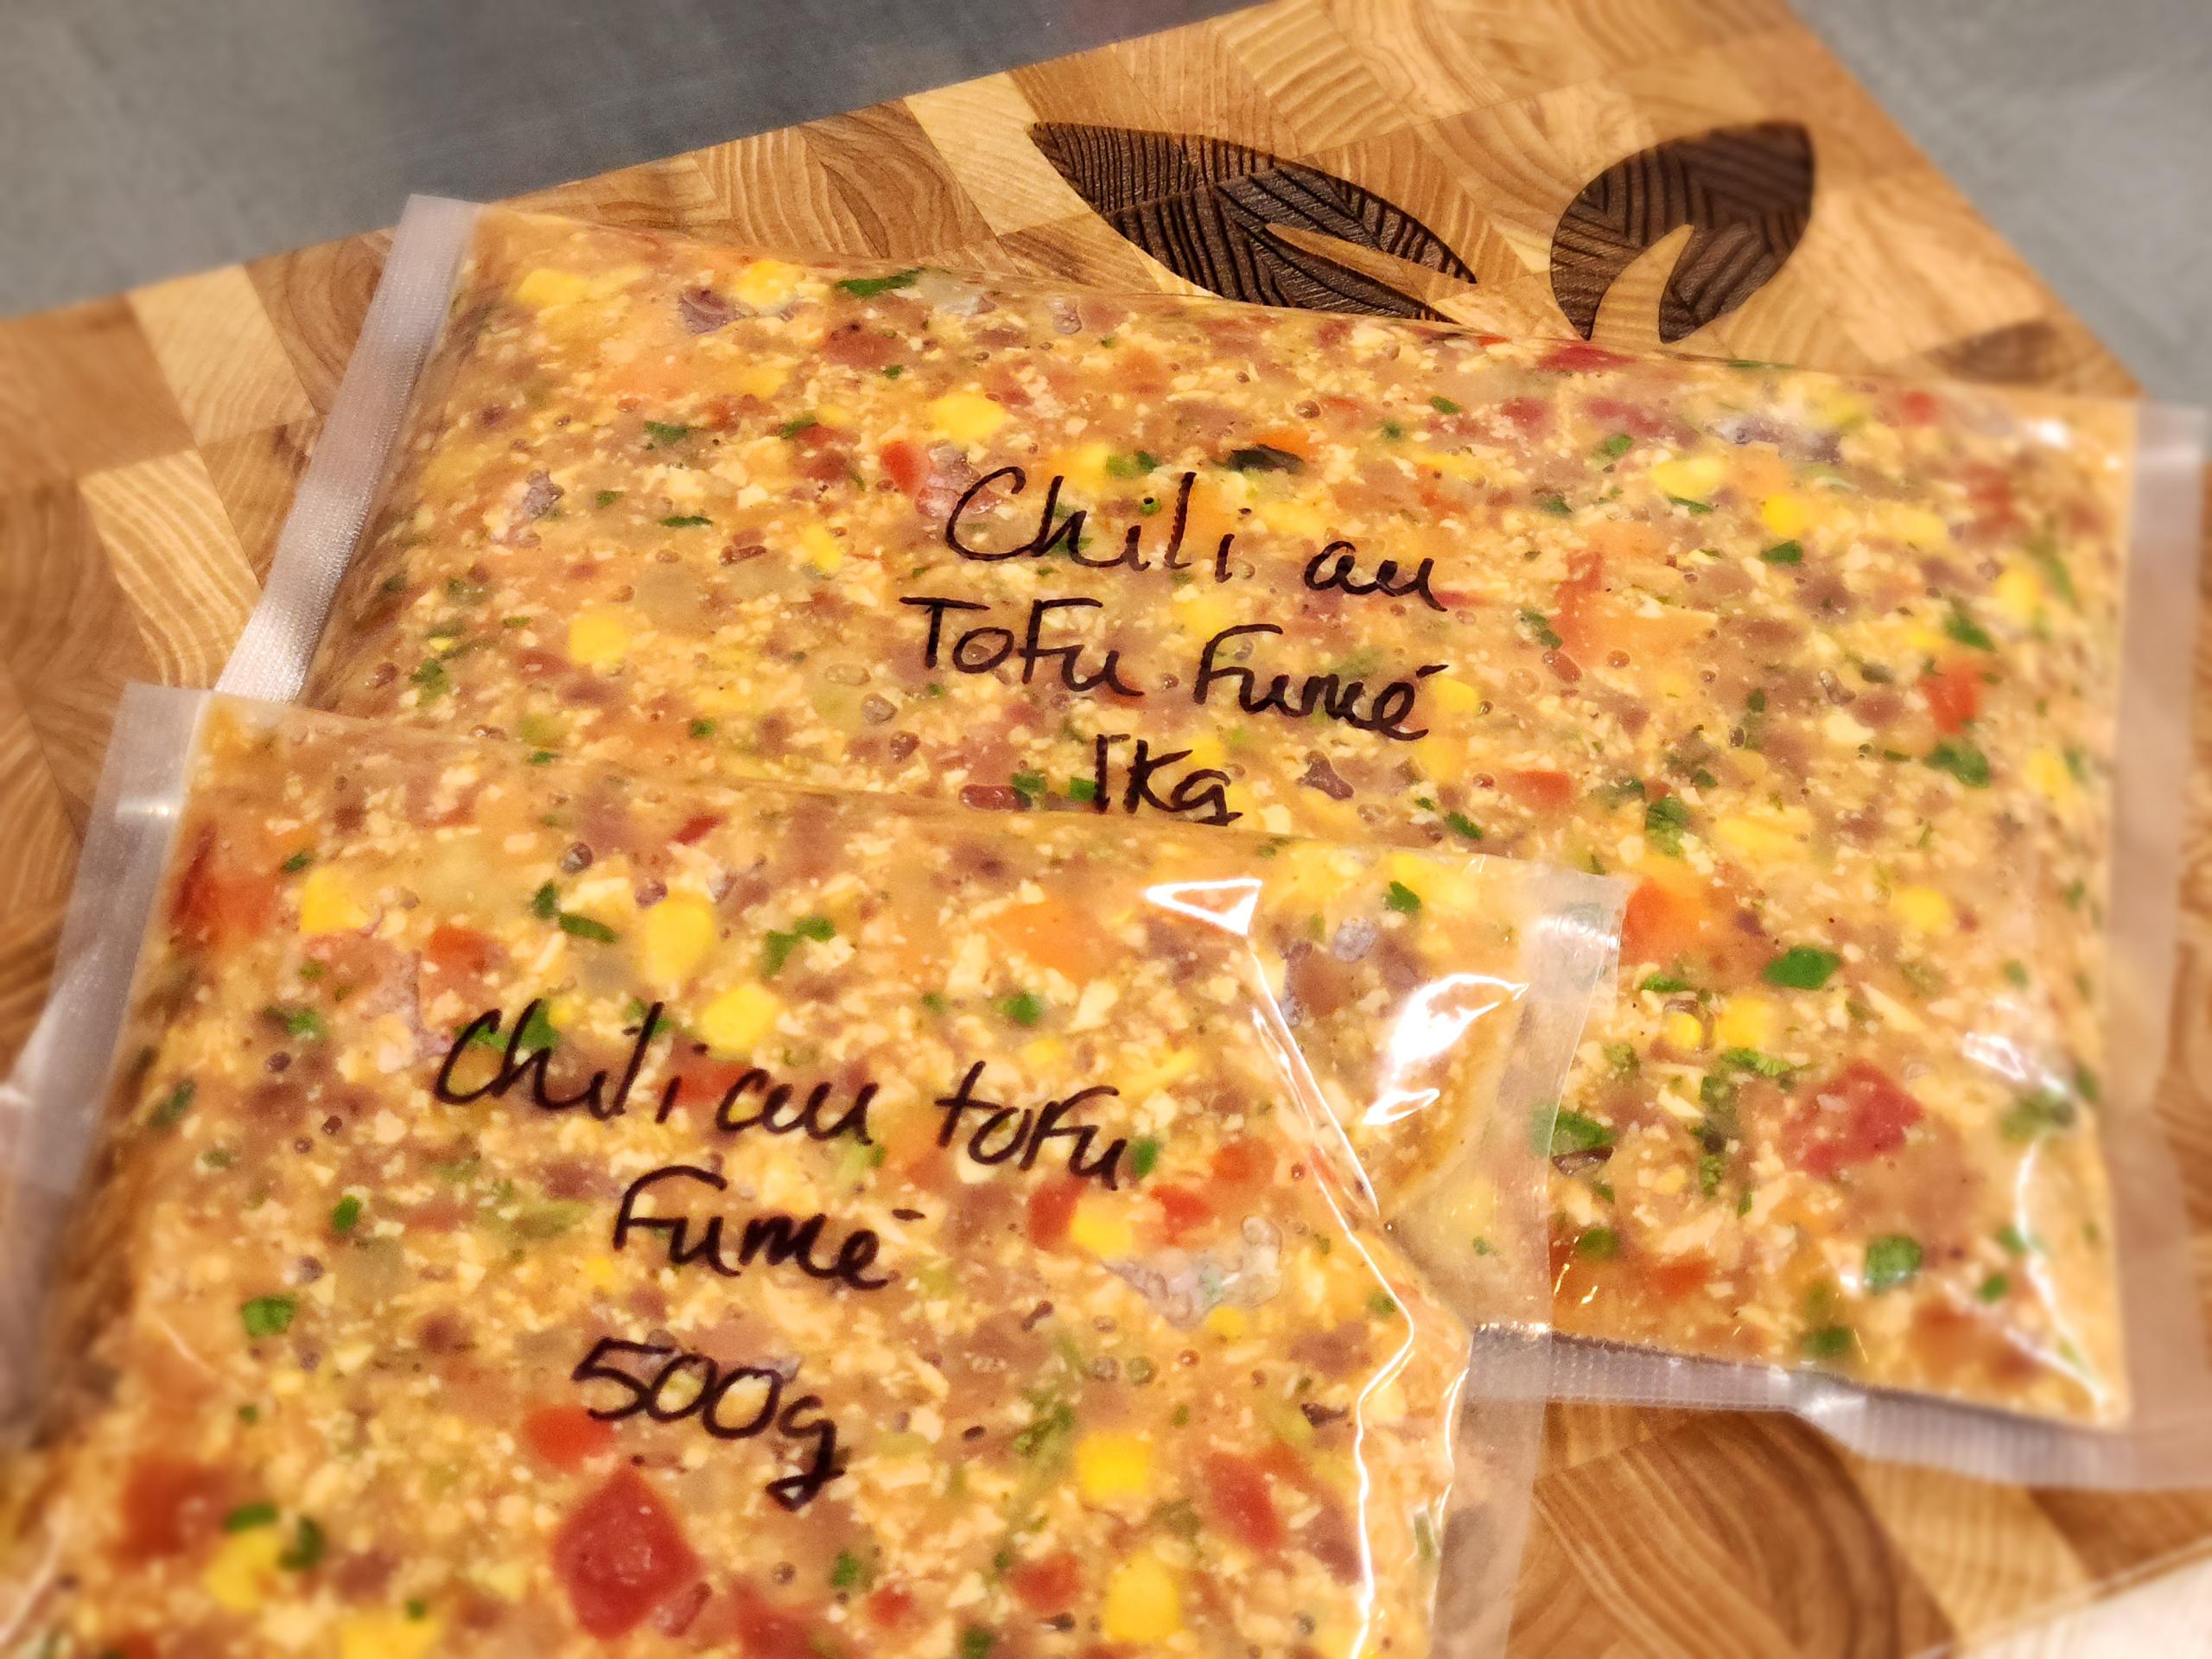 Chili au
Tofu Fumé
1Kg
Chili au tofu
Fumé
500g